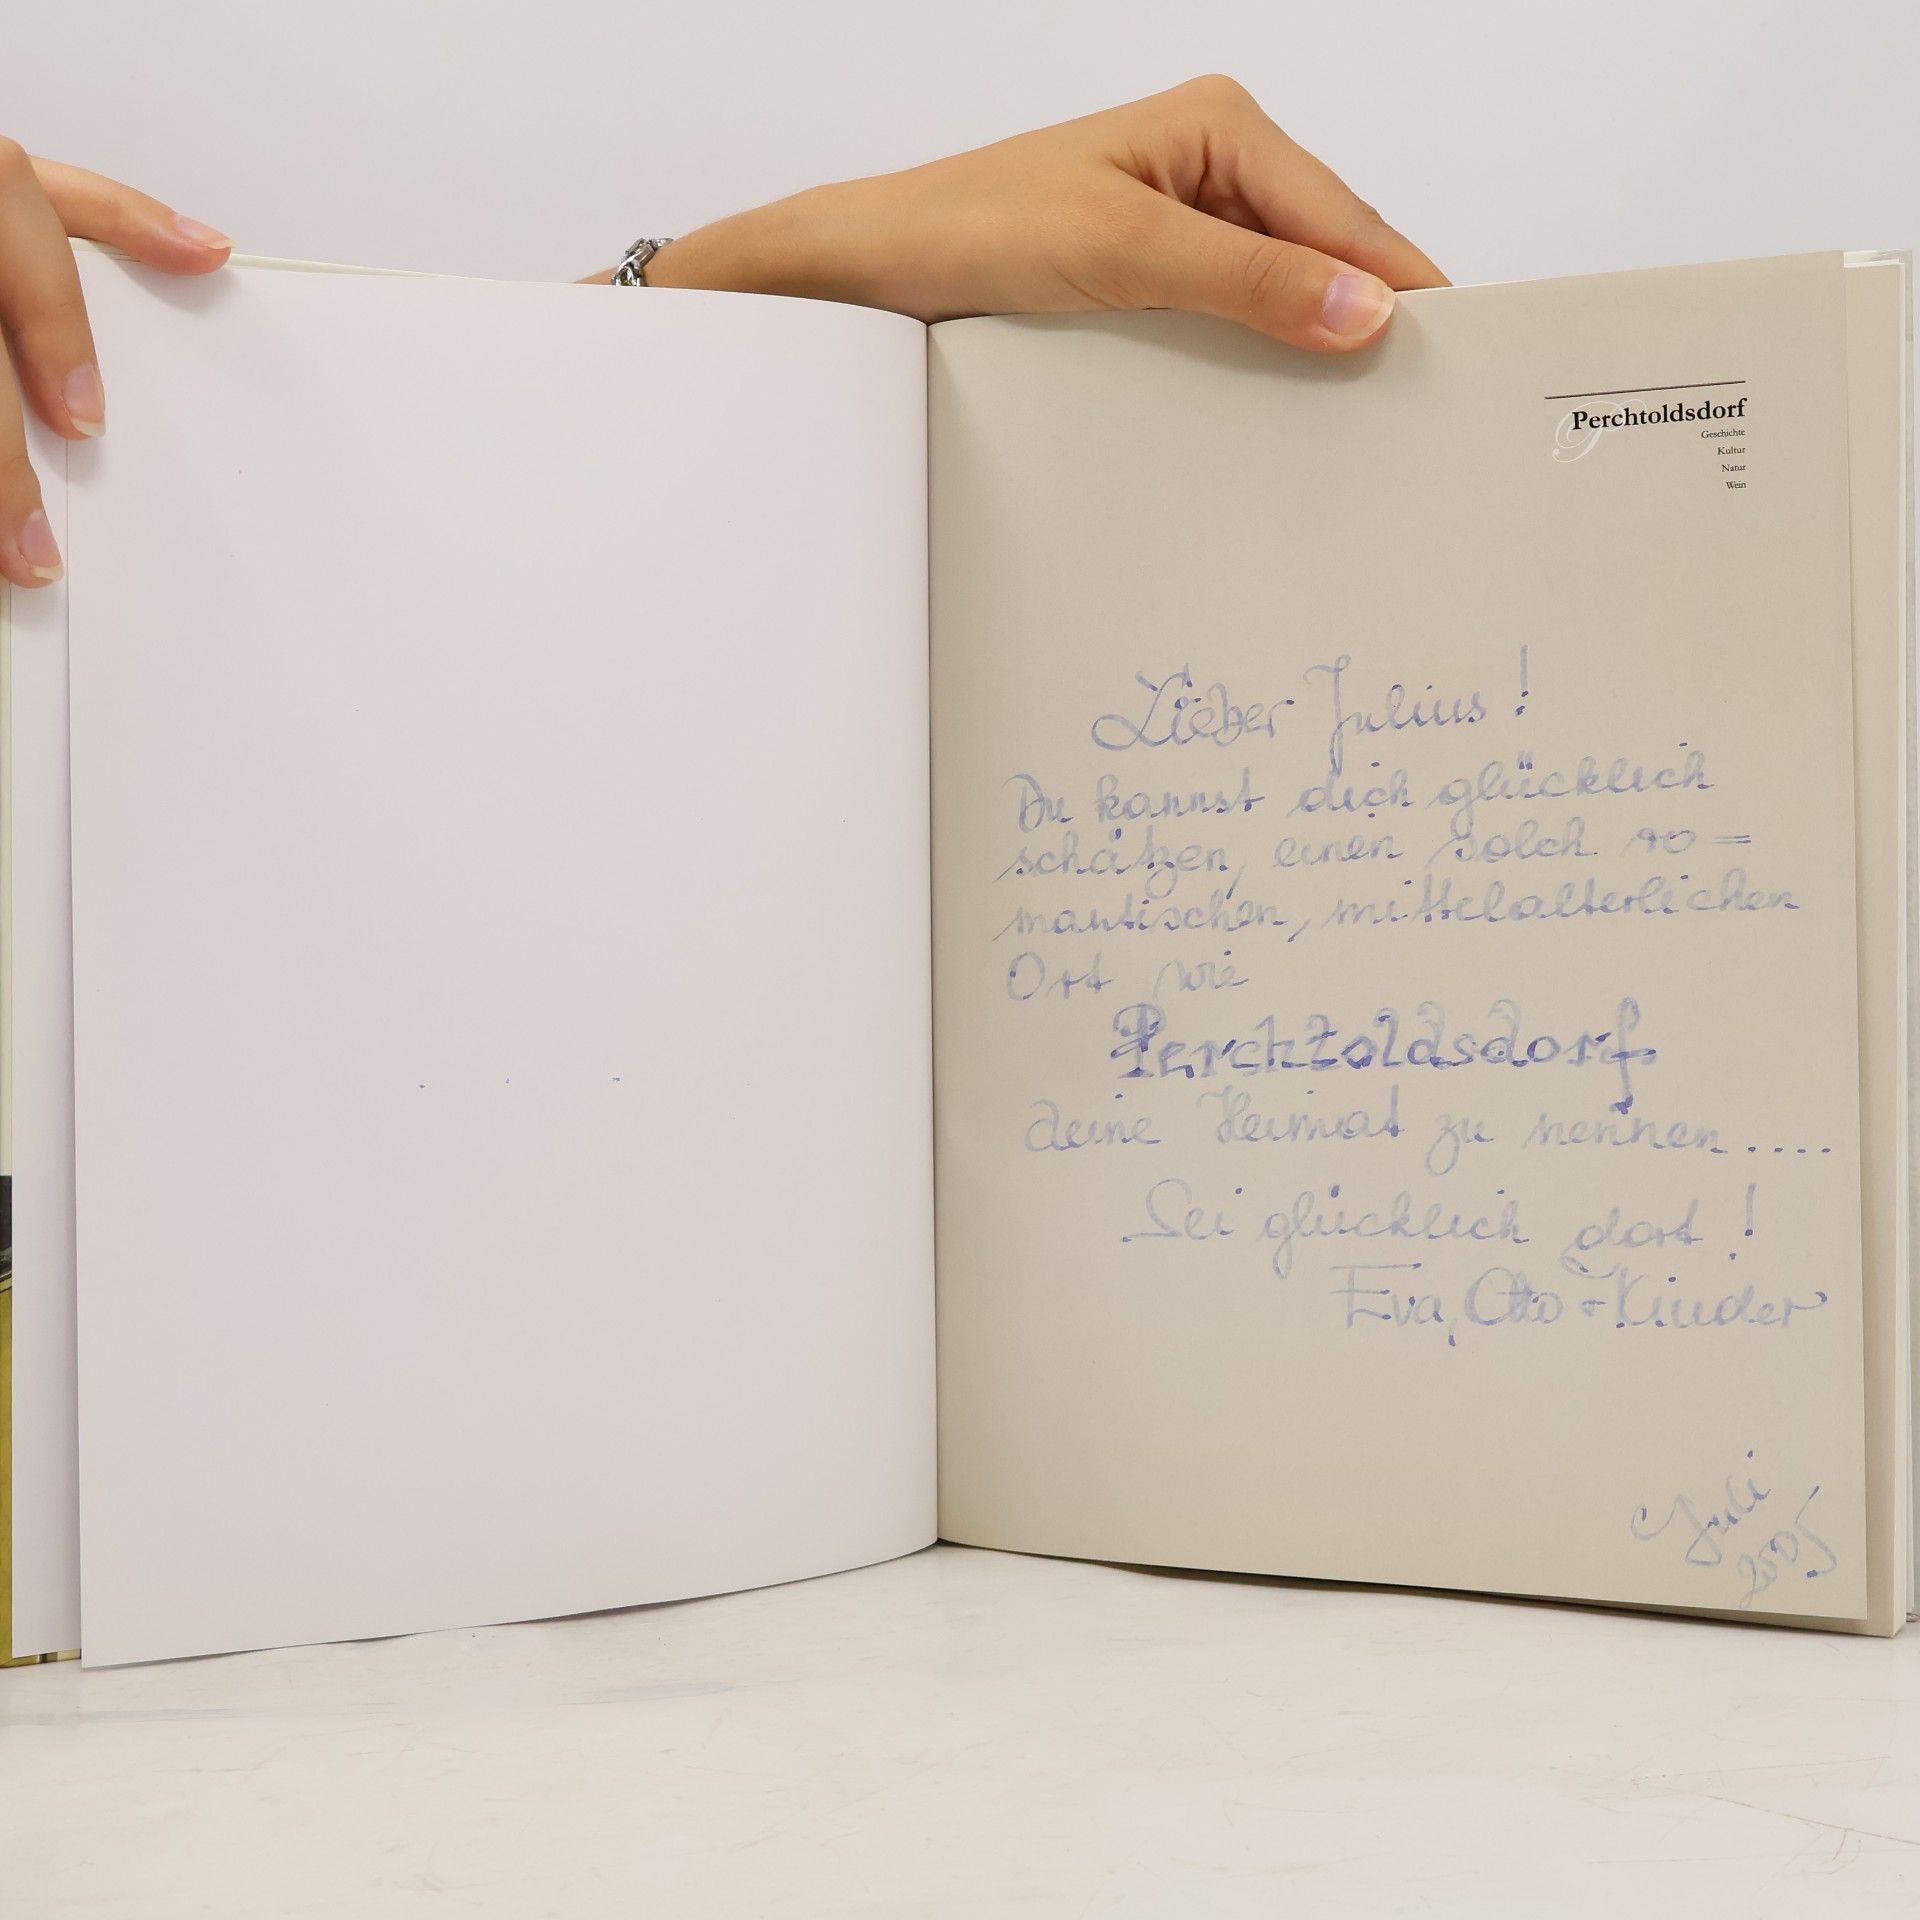 Perchtoldsdorf
Geschichte
Kultur
Natur
Wein
Lieber Julius!
Du kannst dich glücklich
schätzen, einen solch ro=
mantischen, mittelalterlichen
Ort wie
Perchtoldsdorf
deine Heimat zu nennen.....
Sei glücklich dort!
Eva, Otto + Kinder
Juli
2005